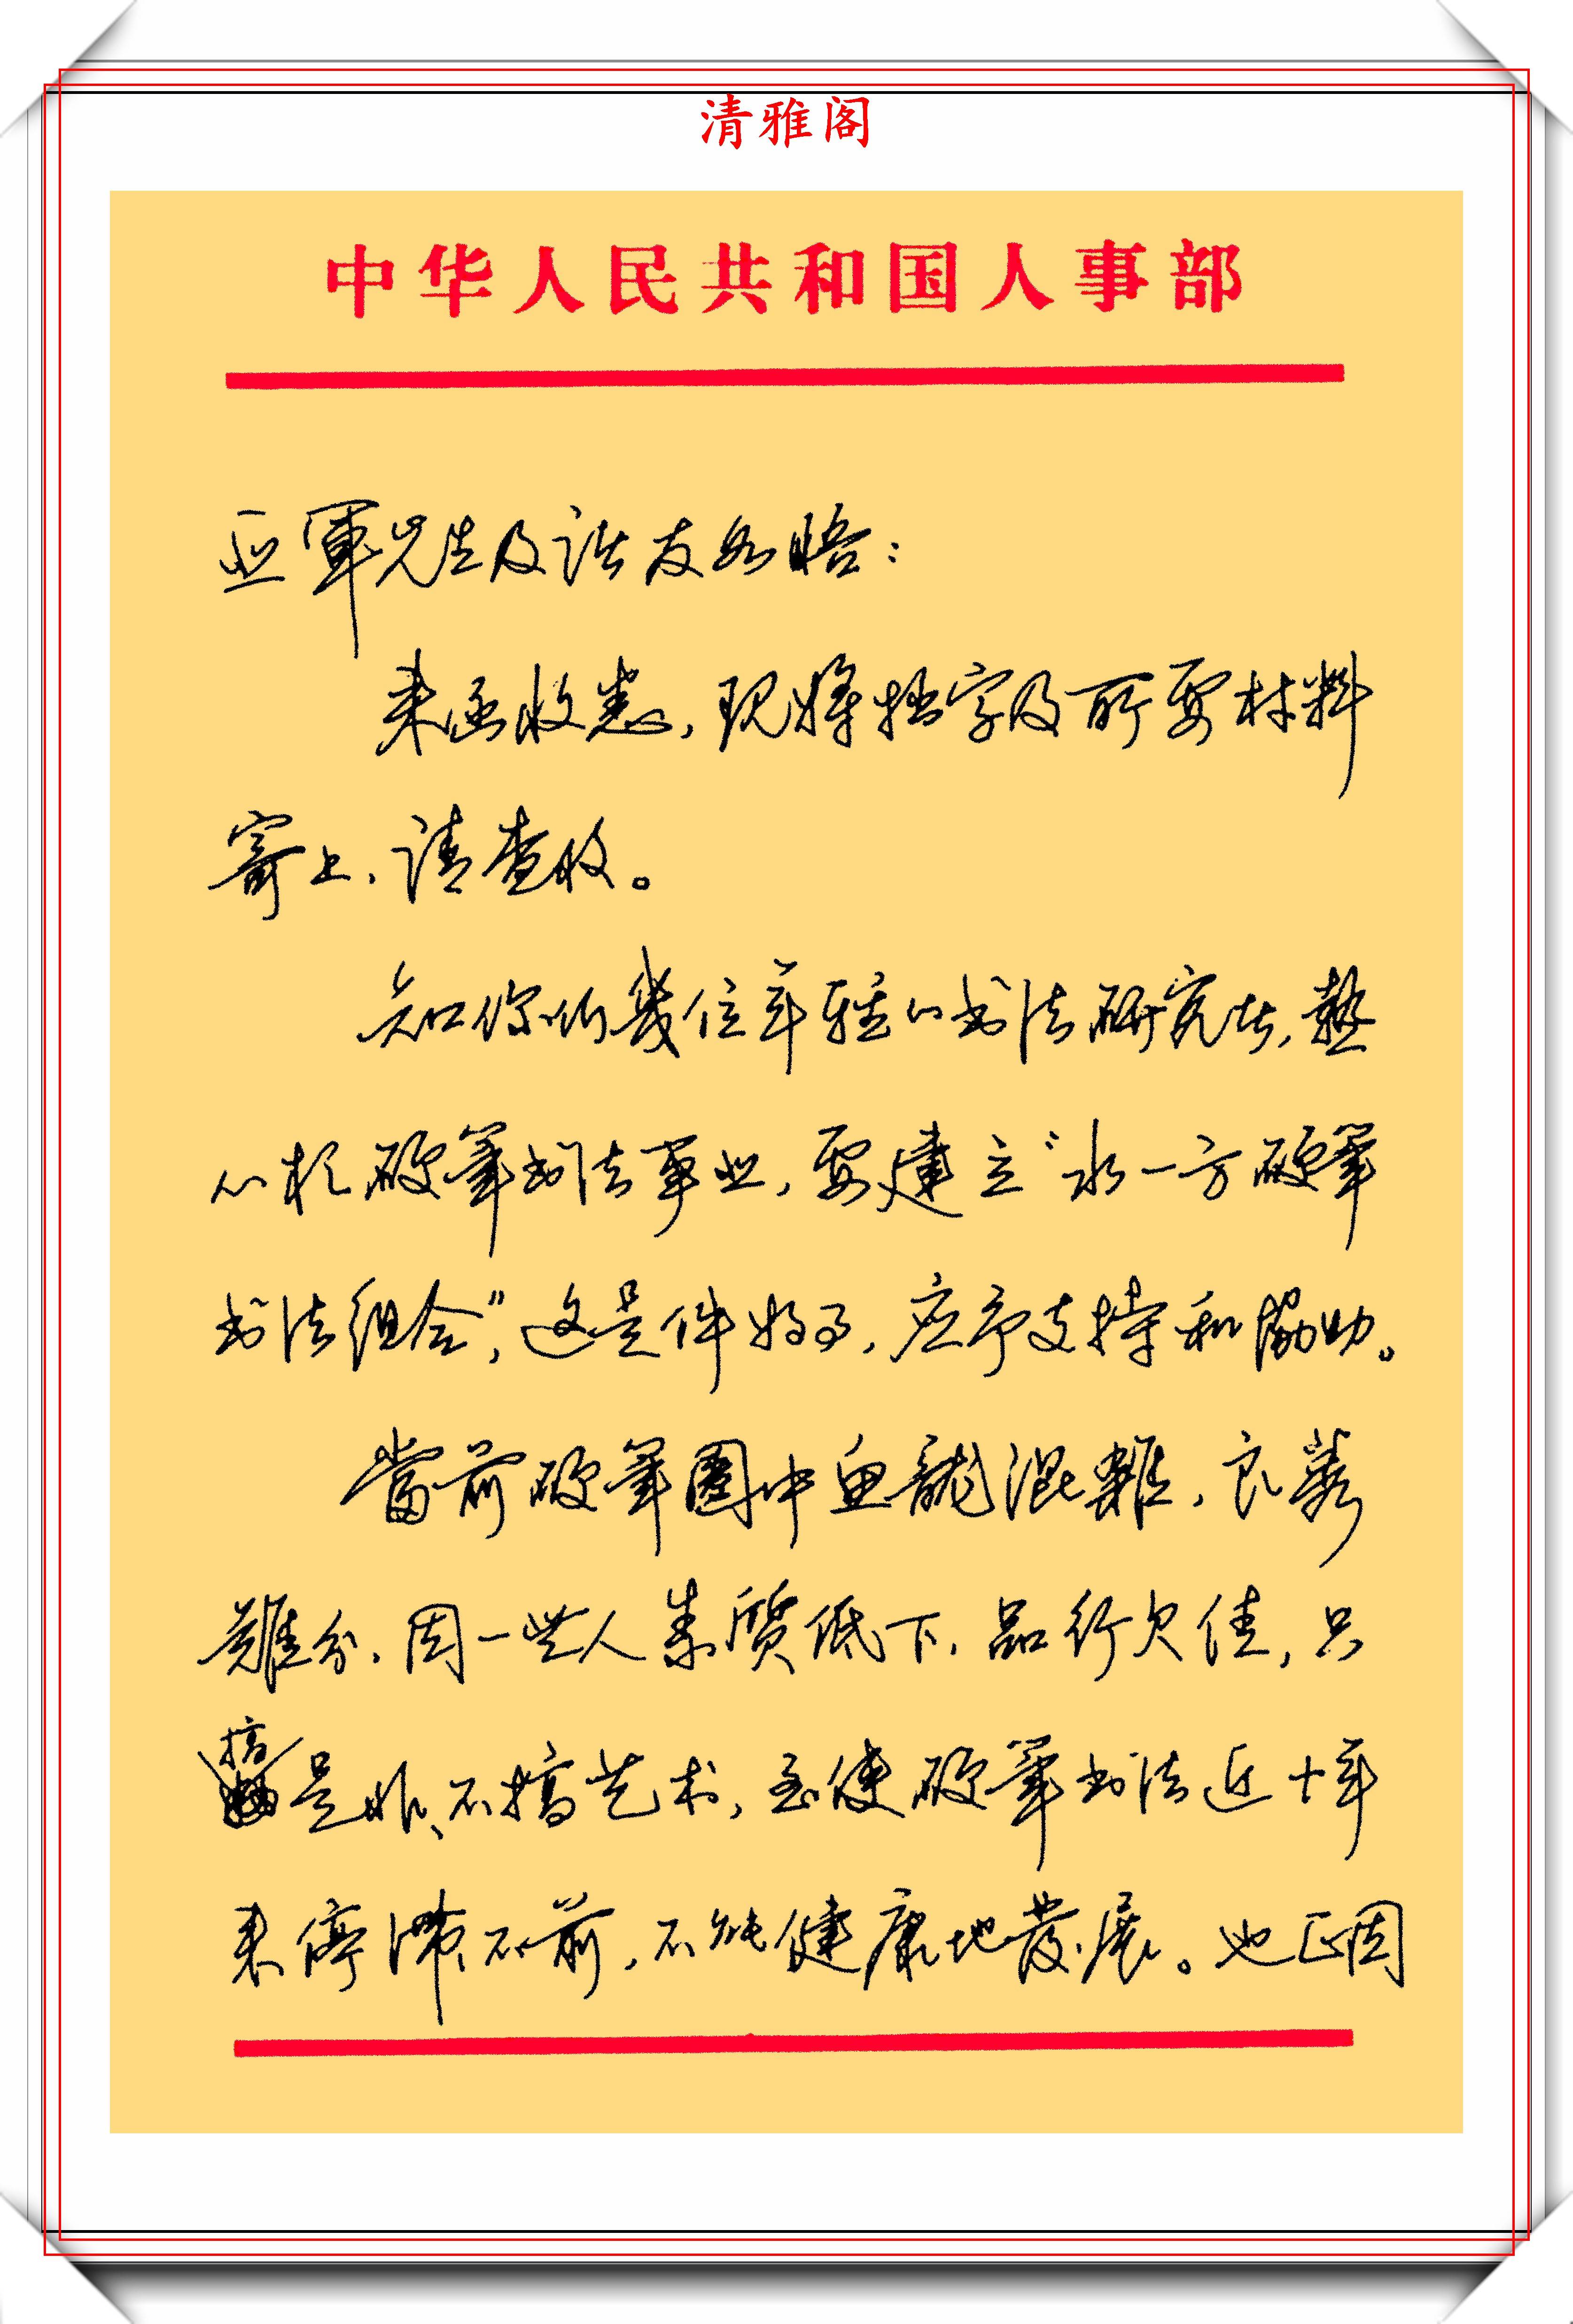 清雅阁
中华人民共和国人事部
亚軍先生及诸友如晤：
来函收悉，现将拙字及所要材料
寄上，请查收。
知你们幾位年轻的书法研究者，热
心於硬笔书法事业，要建立“水一方硬笔
书法组合”，这是件好事，应予支持和協助。
當前硬筆圈中鱼龍混雜，良莠
難分，因一些人素质低下，品行欠佳，只
搞是非、不搞艺术，至使硬筆书法近十年
来停滞不前，不能健康地發展。也正因